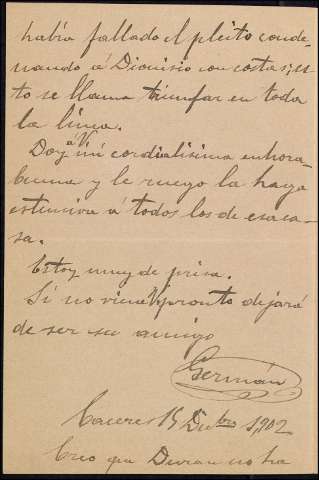 había fallado el pleito conde-
nando á Dionisio con costas; es-
to se llama triunfar en toda
la linea.
Doy á V. mi cordialisima enhora-
buena y le ruego la haga
estensiva á todos los de esa ca-
sa.
Estoy muy de prisa.
Si no viene V. pronto dejará
de ser su amigo
Germán
Caceres 15 Dicbre 1902
Creo que Duran no ha